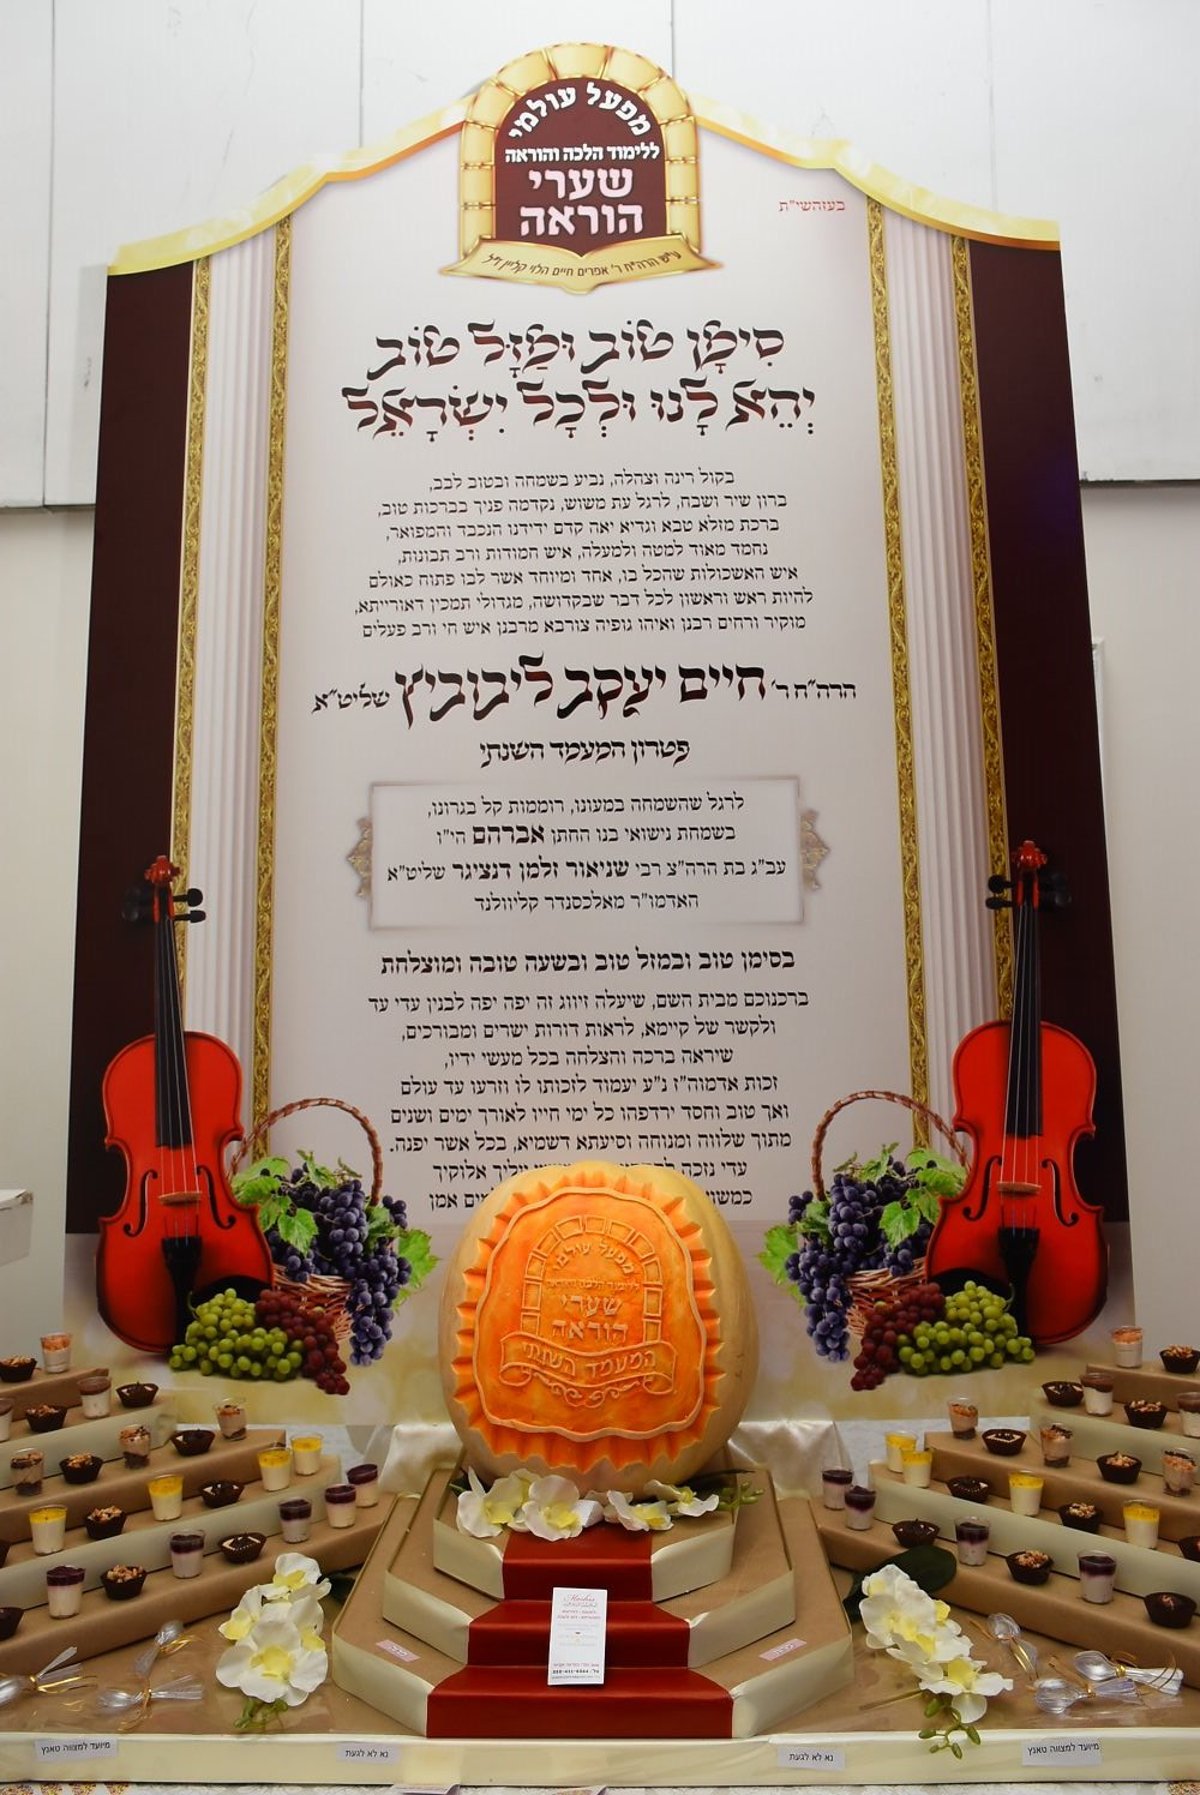 מפעל עולמי
ללימוד הלכה והוראה
שערי
הוראה
ע״ש הרה״ח ר' אפרים חיים הלוי קליין ז״ל
בעזהשי״ת
סִימָן טוֹב וּמַזָּל טוֹב
יְהֵא לָנוּ וּלְכָל יִשְׂרָאֵל
בקול רינה וצהלה, נביע בשמחה ובטוב לבב,
ברון שיר ושבח, לרגל עת משוש, נקדמה פניך בברכות טוב,
ברכת מזלא טבא וגדיא יאה קדם ידידנו הנכבד והמפואר,
נחמד מאוד למטה ולמעלה, איש חמודות ורב תבונות,
איש האשכולות שהכל בו, אחד ומיוחד אשר לבו פתוח כאולם
להיות ראש וראשון לכל דבר שבקדושה, מגדולי תמכין דאורייתא,
מוקיר ורחים רבנן ואיהו גופיה צורבא מרבנן איש חי ורב פעלים
הרה״ח ר' חיים יעקב ליבוביץ שליט״א
פטרון המעמד השנתי
לרגל שהשמחה במעונו, רוממות קל בגרונו,
בשמחת נישואי בנו החתן אברהם הי״ו
עב״ג בת הרה״צ רבי שניאור זלמן דנציגר שליט״א
האדמו״ר מאלכסנדר קליוולנד
בסימן טוב ובמזל טוב ובשעה טובה ומוצלחת
ברכנוכם מבית השם, שיעלה זיווג זה יפה יפה לבנין עדי עד
ולקשר של קיימא, לראות דורות ישרים ומבורכים,
שיראה ברכה והצלחה בכל מעשי ידיו,
זכות אדמוה״ז נ״ע יעמוד לזכותו לו וזרעו עד עולם
ואך טוב וחסד ירדפהו כל ימי חייו לאורך ימים ושנים
מתוך שלווה ומנוחה וסיעתא דשמיא, בכל אשר יפנה.
עדי נזכה אלוקיך
אמן
מפעל עולמי
ללימוד הלכה והוראה
שערי
הוראה
המעמד השנתי
מיועד למצווה טאנץ
נא לא לגעת
נא לא לגעת
מיועד למצווה טאנץ